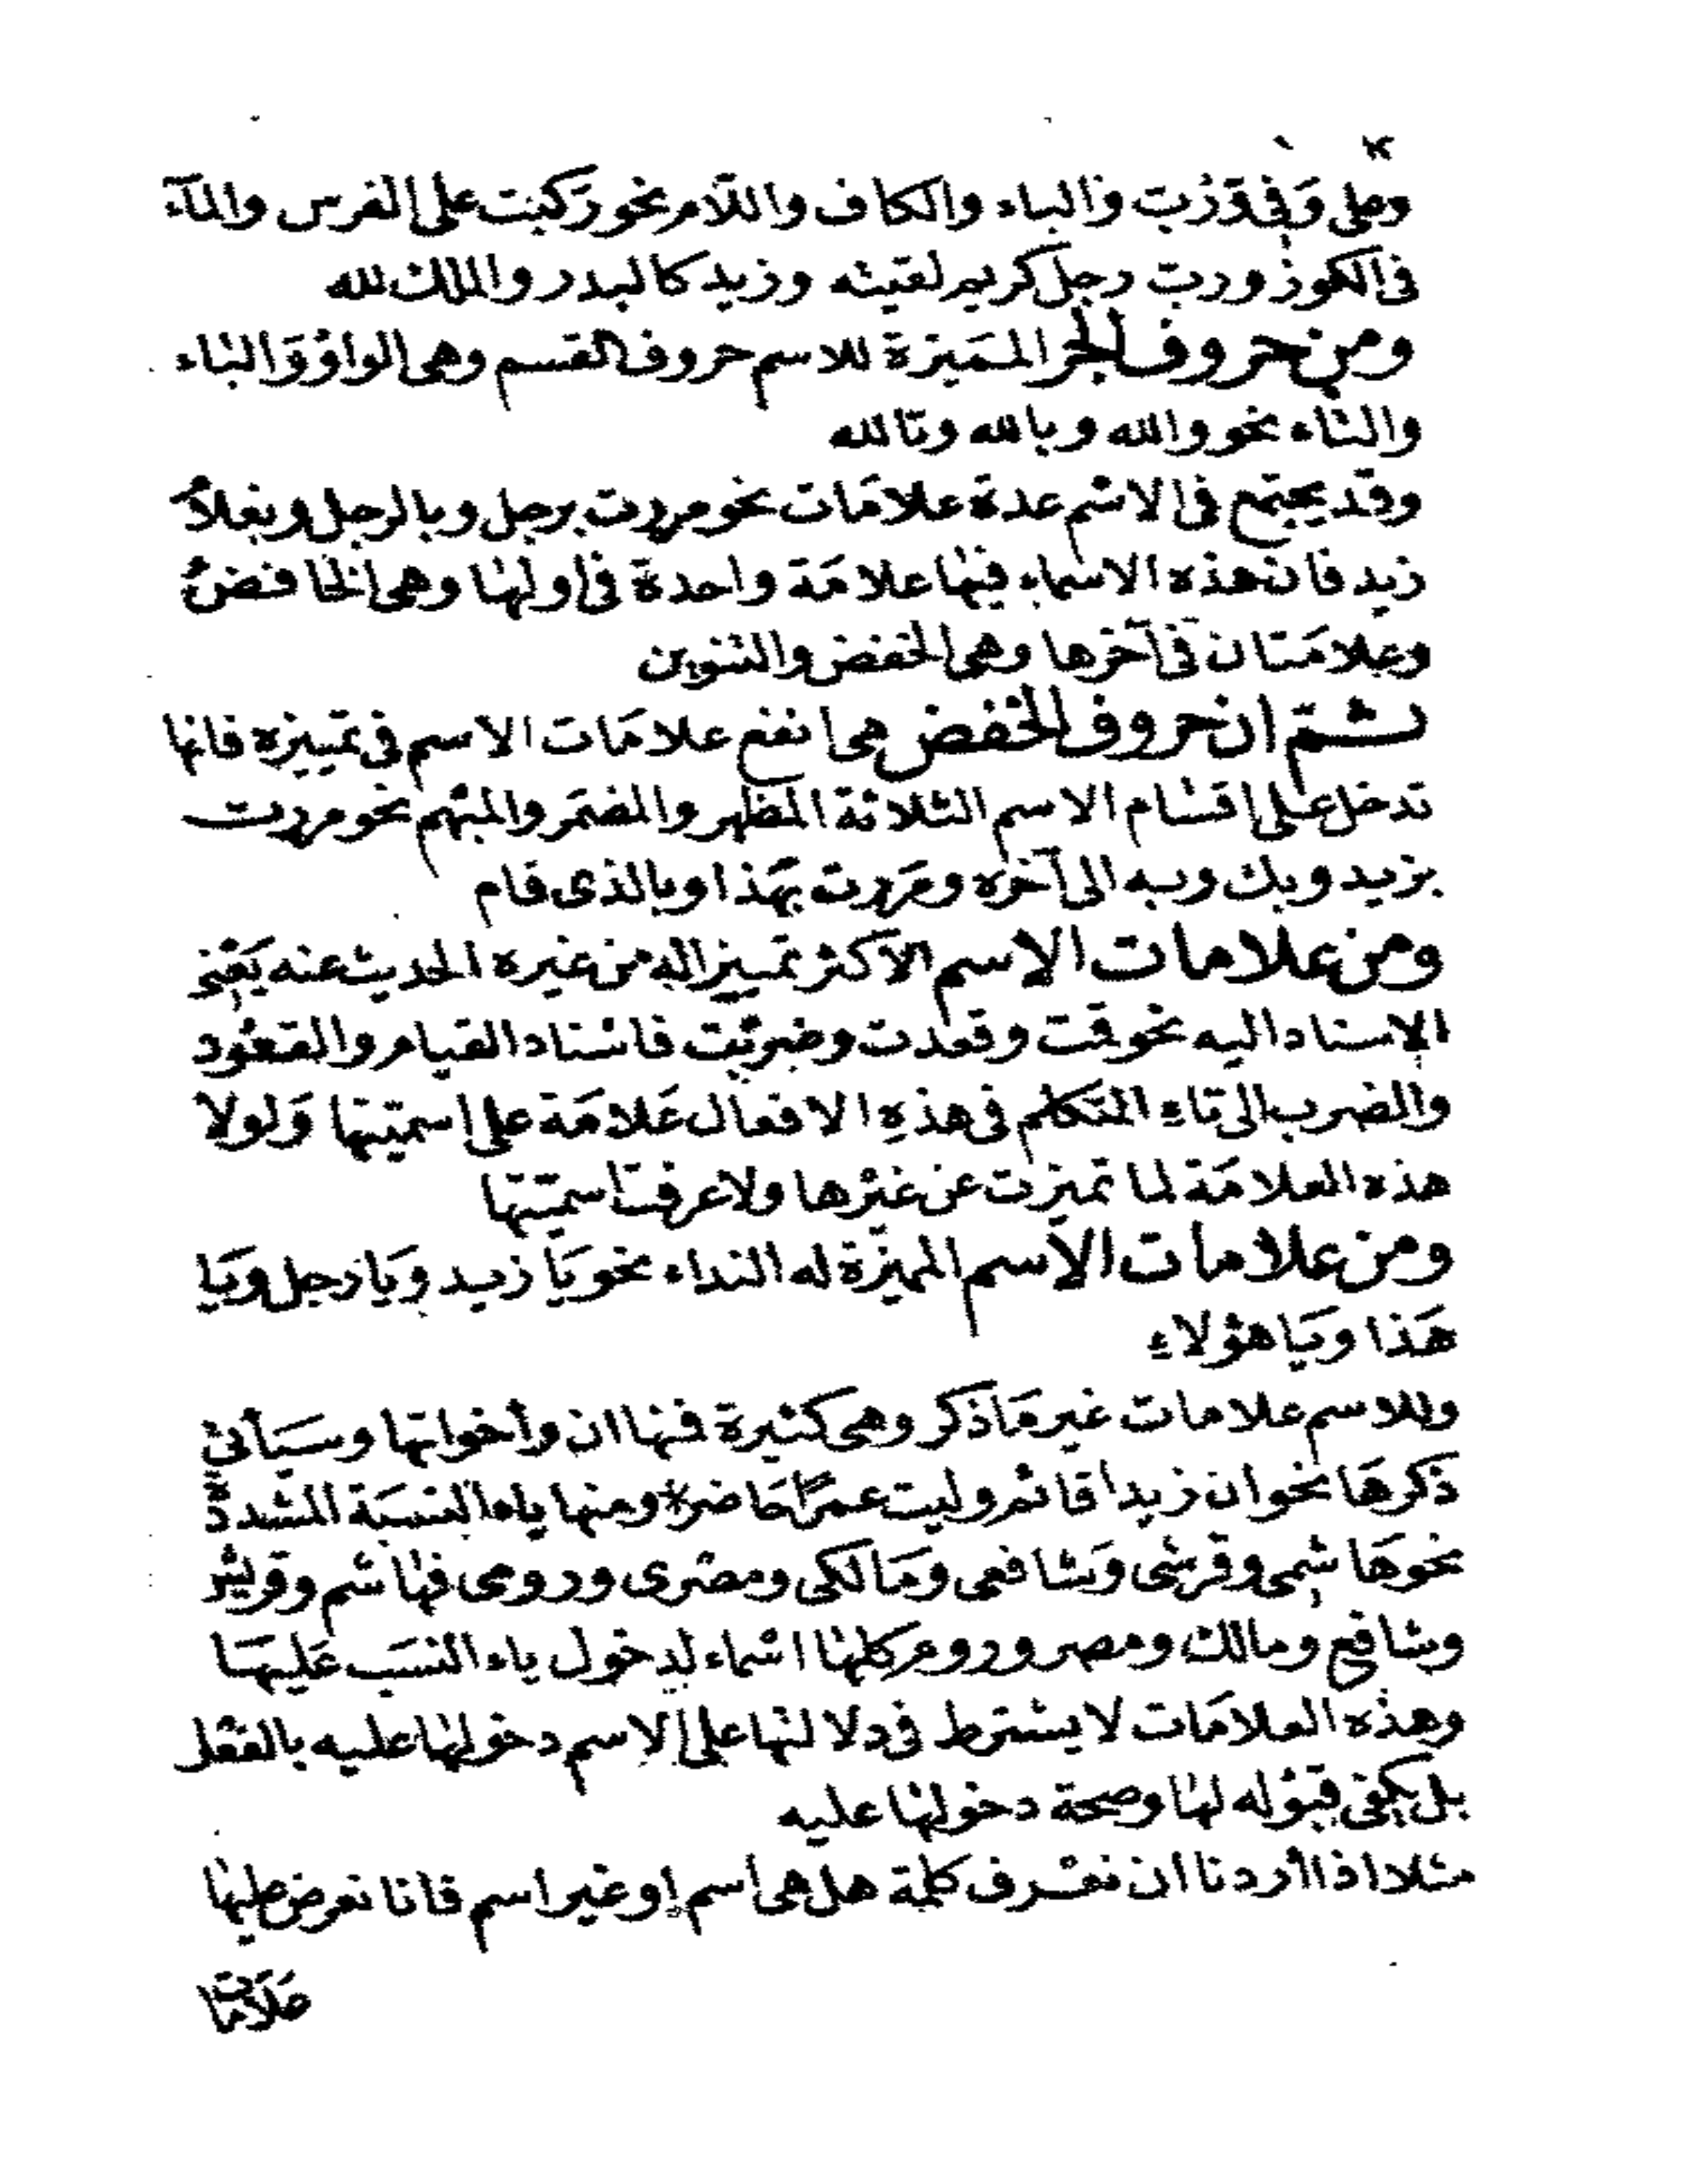 وعلى وَفى وَرُبّ وَالباء والكاف واللّام نحو ركبت على الفرس والمآء
فى الكوز وربّ رجل كريم لقيته وزيد كالبدر والملك لله
ومن حروف الجر المميزة للاسم حروف القسم وهى الواوُ وَالباء
والتاء نحو والله وبالله وتالله
وقد يجتمع فى الاسم عدة علامَات نحو مررت برجل وبالرجل وبغلامُ
زيد فان هذه الاسماء فيها علامَة واحدة فى اولها وهى الخافضُ
وعلامَتان فى آخرها وهى الخفض والتنوين
ثمّ ان حروف الخفض هى انفع علامَات الاسم فى تمييزه فانها
تدخل على اقسَام الاسم الثلاثة المظهر والمضمَر والمبهم نحو مررت
بزيد وبك وبه الى آخره ومَررت بهَذا وبالذى قام
ومن علامات الاسم الاكثر تمييزا له من غيره الحديث عنه يَعْنى
الاسناد اليه نحو قمت وقعدت وضربْت فاسْناد القيام والقعُود
والضرب الى تاءِ المتكلم فى هذهِ الافعال عَلامَة على اسميّتها وَلولا
هذه العلامَة لما تميزت عن غيْرها ولا عرفت اسميّتها
ومن علامات الاسم المميّزة له النداء نحو يَا زيد وَيَا رجل وَيَا
هَذا ويَا هؤلاءِ
وللاسم علامات غير مَا ذكر وهى كثيرة فمنها ان وأخواتها وسيَأتى
ذكرهَا نحو ان زيدا قائم وليت عمرًا حَاضر* ومنها ياء النسبَة المشددة
نحو هَاشمى وقرشى وَشافعى ومَالكى ومصْرى ورومى فهَاشم وقريش
وشافع ومالك ومصر وروم كلها اسْماء لدخول ياء النسَب عَليهَا
وهذه العلامَات لا يشترط فى دلالتها على الاسم دخولها عليه بالفعْل
بل يكفى قبوُله لها وصحة دخولها عليه
مثلا اذا أردنا ان نعْرف كلمة هل هى اسم او غير اسم فانا نعرض عليها
عَلَامَات